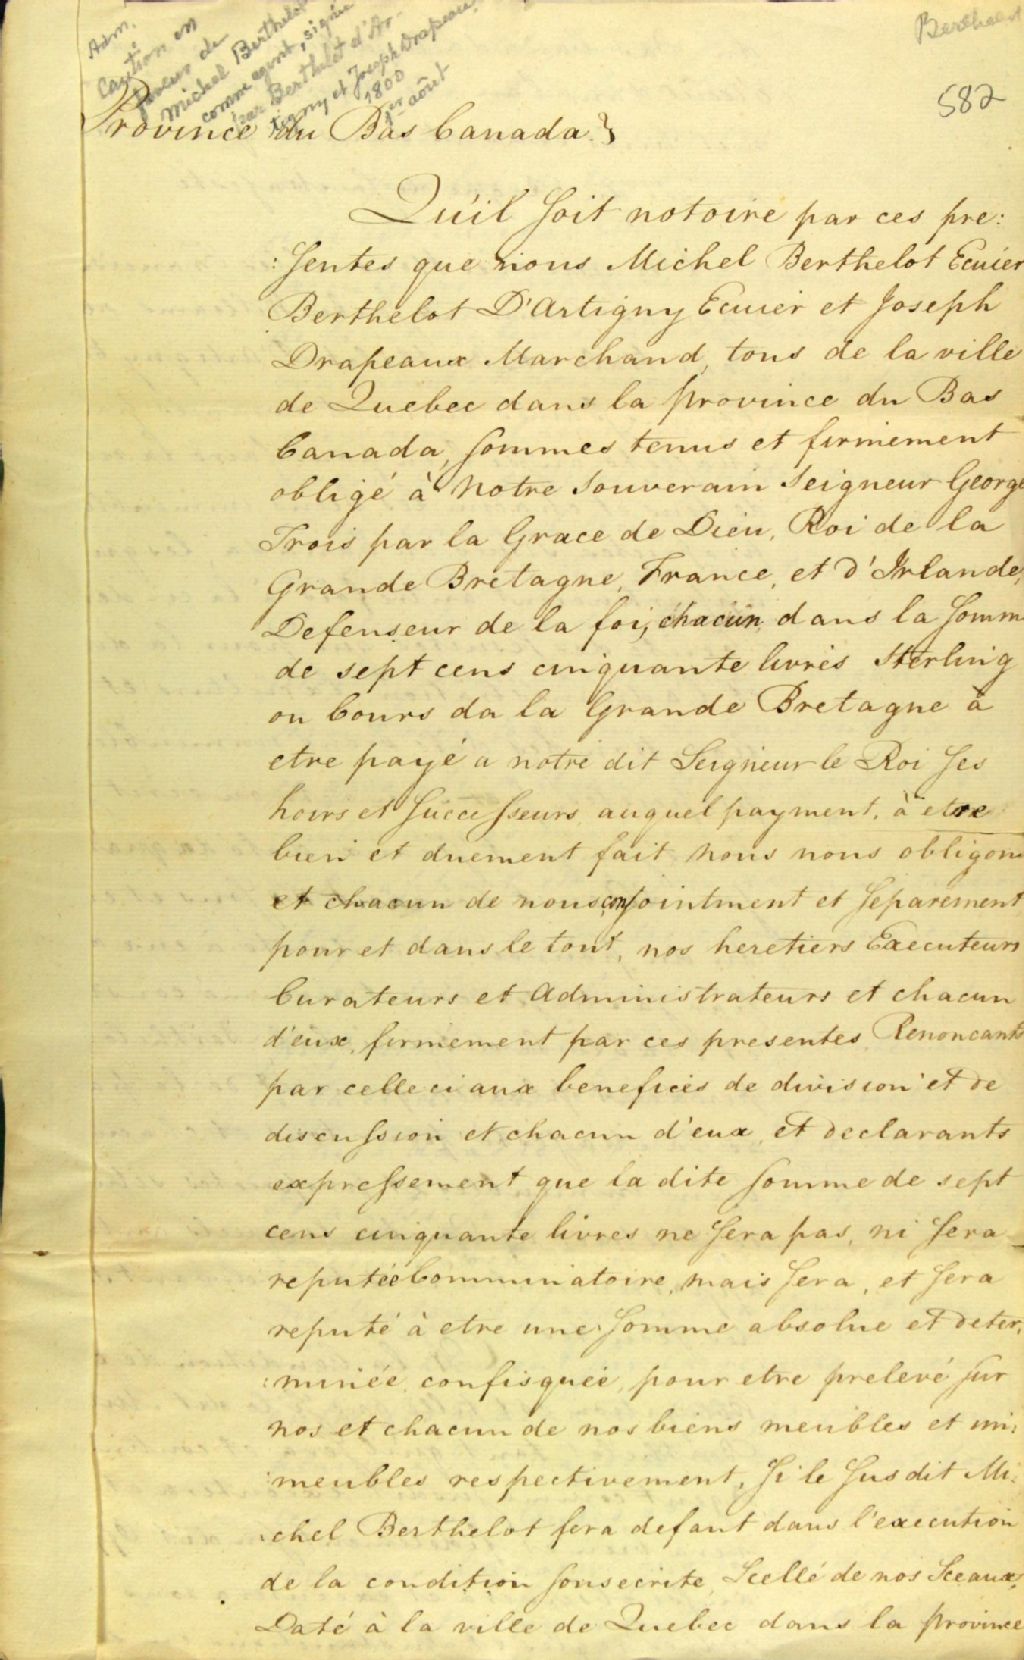 Adm.
Caution en
faveur de
Michel Berthelot
comme agent, signée
par Berthelot d'Ar-
tigny et Joseph Drapeau.
1800
1er août
Berthelot
582
Province du Bas Canada }
Qu'il soit notoire par ces pre:
:sentes que nous Michel Berthelot Ecuier
Berthelot D'Artigny Ecuier et Joseph
Drapeaux Marchand, tous de la ville
de Quebec dans la province du Bas
Canada, sommes tenus et firmement
obligé à Notre Souverain Seigneur George
Trois par la Grace de Dieu, Roi de la
Grande Bretagne, France, et d'Irlande,
Defenseur de la foi, chacun dans la somme
de sept cens cinquante livres Sterling
ou Cours da la Grande Bretagne à
etre payé a notre dit Seigneur le Roi ses
hoirs et successeurs, auquel payment, à etre
bien et duement fait nous nous obligons
et chacun de nous conjointment et separement
pour et dans le tout, nos heretiers Executeurs
Curateurs et Administrateurs et chacun
d'eux, firmement par ces presentes Renoncants
par celle ci aux benefices de division et de
discussion et chacun d'eux, et declarants
expressement que la dite somme de sept
cens cinquante livres ne sera pas, ni sera
reputée Comminatoire, mais sera, et sera
reputé à etre une somme absolue et deter:
:minée, confisquée, pour etre prelevé sur
nos et chacun de nos biens meubles et im:
:meubles respectivement, Si le susdit Mi:
:chel Berthelot fera defaut dans l'execution
de la condition sousecrite, Scellé de nos Sceaux,
Daté à la ville de Quebec dans la province